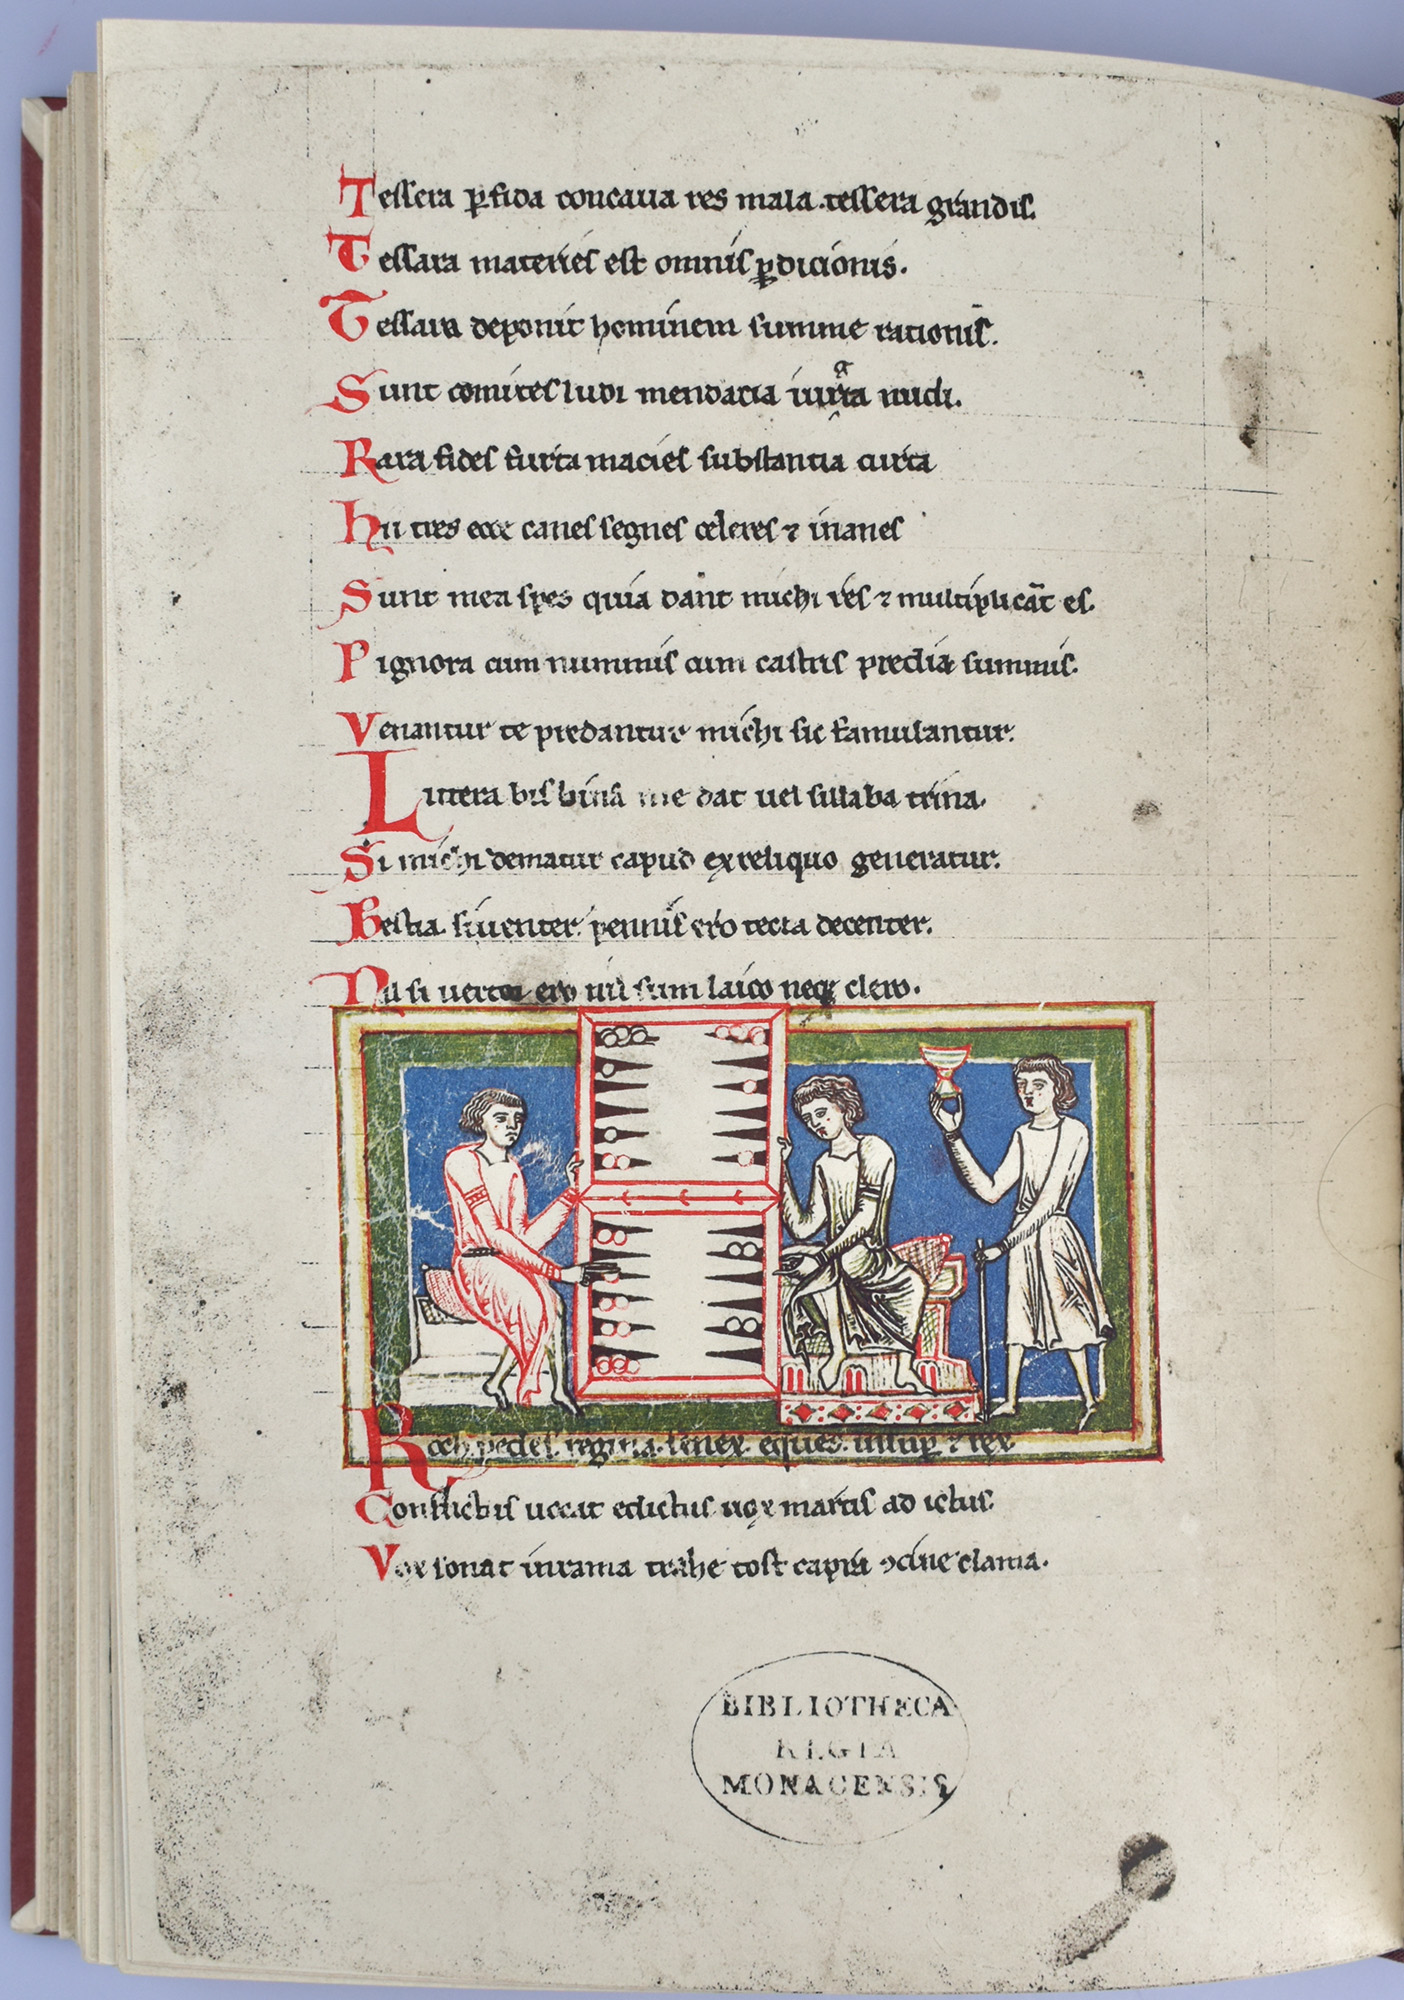 Tessera ꝑfida concaua res mala. tessera grandis.
Tessara materies est omnis ꝑdicionis.
Tessara deponit hominem summe rationis̄.
Sunt comites ludi mendacia iuraͣ nudi.
Rara fides furta macies substantia curta
Hii tres ecce canes segnes celeres ⁊ inanes
Sunt mea spes quia dant michi res ⁊ multiplicāt es.
Pignora cum nummis cum castris predia summis.
Venantur te predantur michi sic famulantur.
Littera bis bina me dat uel sillaba trina.
Si michi dematur capud ex reliquo generatur.
Bestia. si uenter. pennis ero tecta decenter.
Nil si uertor ero nil sum laico neqꝫ clero.
Roch. pedes. regina. senex. eques. insuꝑ ⁊ rex
Conflictus uocat edictus uox martis ad ictus.
Vox sonat in rama trahe tost capra ꝯcine clama.
BIBLIOTHECA
REGIA
MONACENSIS